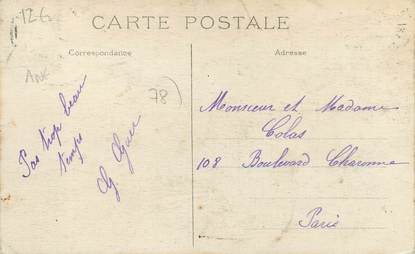 12€
CARTE POSTALE
Correspondance
Adresse
ANC
78)
Pas trop beau
temps
Monsieur et Madame
Colas
108 Boulevard Charonne
Paris